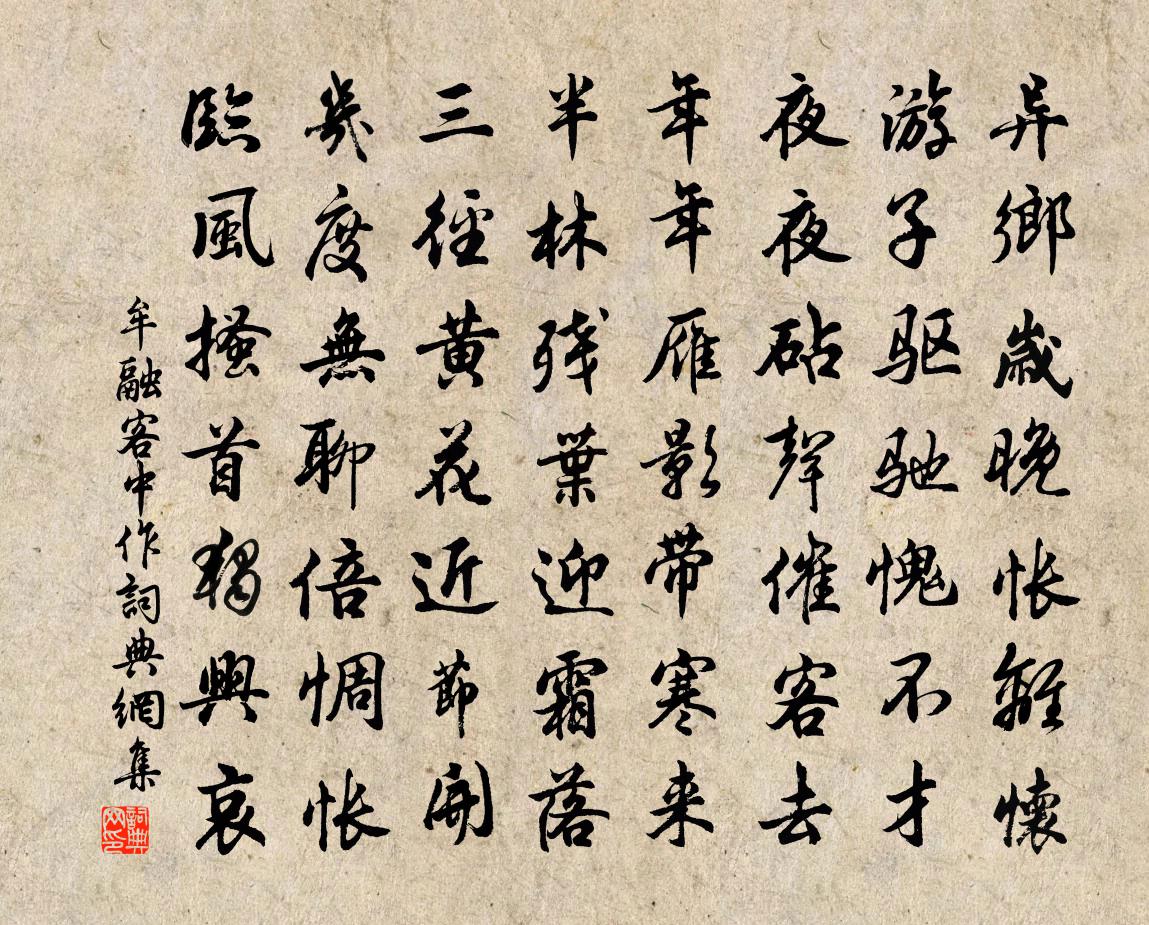 异鄉歲晚怅離懷
游子驱驰愧不才
夜夜砧聲催客去
年年雁影带寒来
半林残葉迎霜落
三徑黄花近節開
幾度無聊倍惆怅
臨風搔首獨興哀
牟融客中作詞典網集
詞典網印